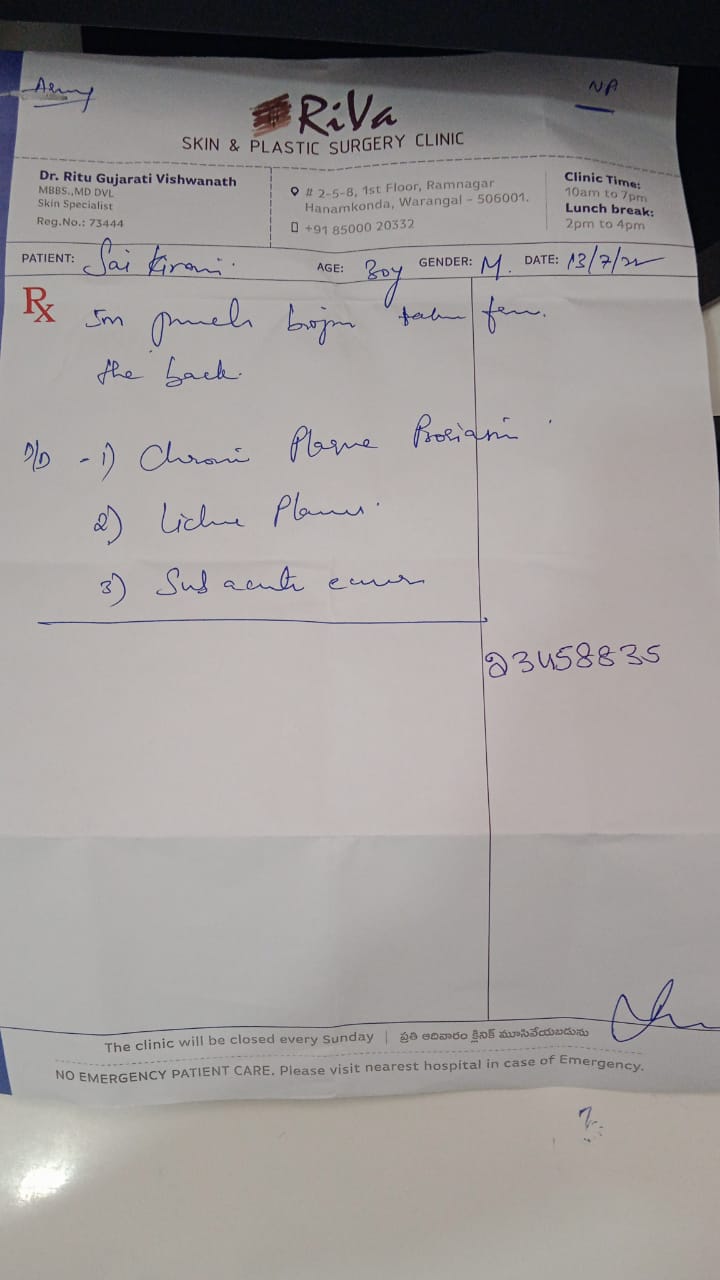 NA
RiVa
SKIN & PLASTIC SURGERY CLINIC
Dr. Ritu Gujarati Vishwanath
MBBS.,MD DVL
Skin Specialist
Reg.No.: 73444
# 2-5-8, 1st Floor, Ramnagar
Hanamkonda, Warangal - 506001.
+91 85000 20332
Clinic Time:
10am to 7pm
Lunch break:
2pm to 4pm
PATIENT: Sai Kiran. AGE: 30y GENDER: M. DATE: 13/7/22
Rx
5m punch taken
the back.
D/D - 1) Chronic Plaque Psoriasis
2) Lichen Planus.
3) Sub acute
23458835
The clinic will be closed every Sunday | ప్రతి ఆదివారం క్లినిక్ మూసివేయబడును
NO EMERGENCY PATIENT CARE. Please visit nearest hospital in case of Emergency.